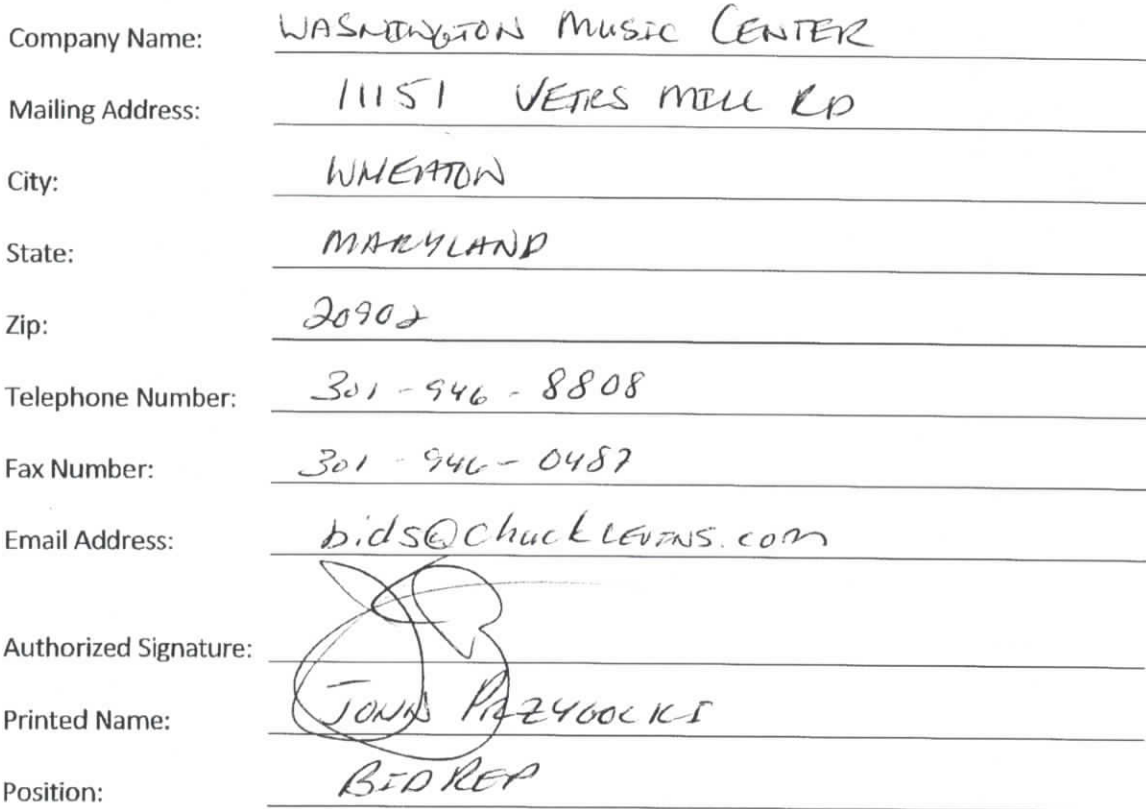 Company Name: WASHINGTON MUSIC CENTER
Mailing Address: 11151 VEIRS MILL RD
City: WHEATON
State: MARYLAND
Zip: 20902
Telephone Number: 301-946-8808
Fax Number: 301-946-0487
Email Address: bids@chuckLEVINS.com
Authorized Signature:
Printed Name: JOHN PRZYGOCKI
Position: BID REP